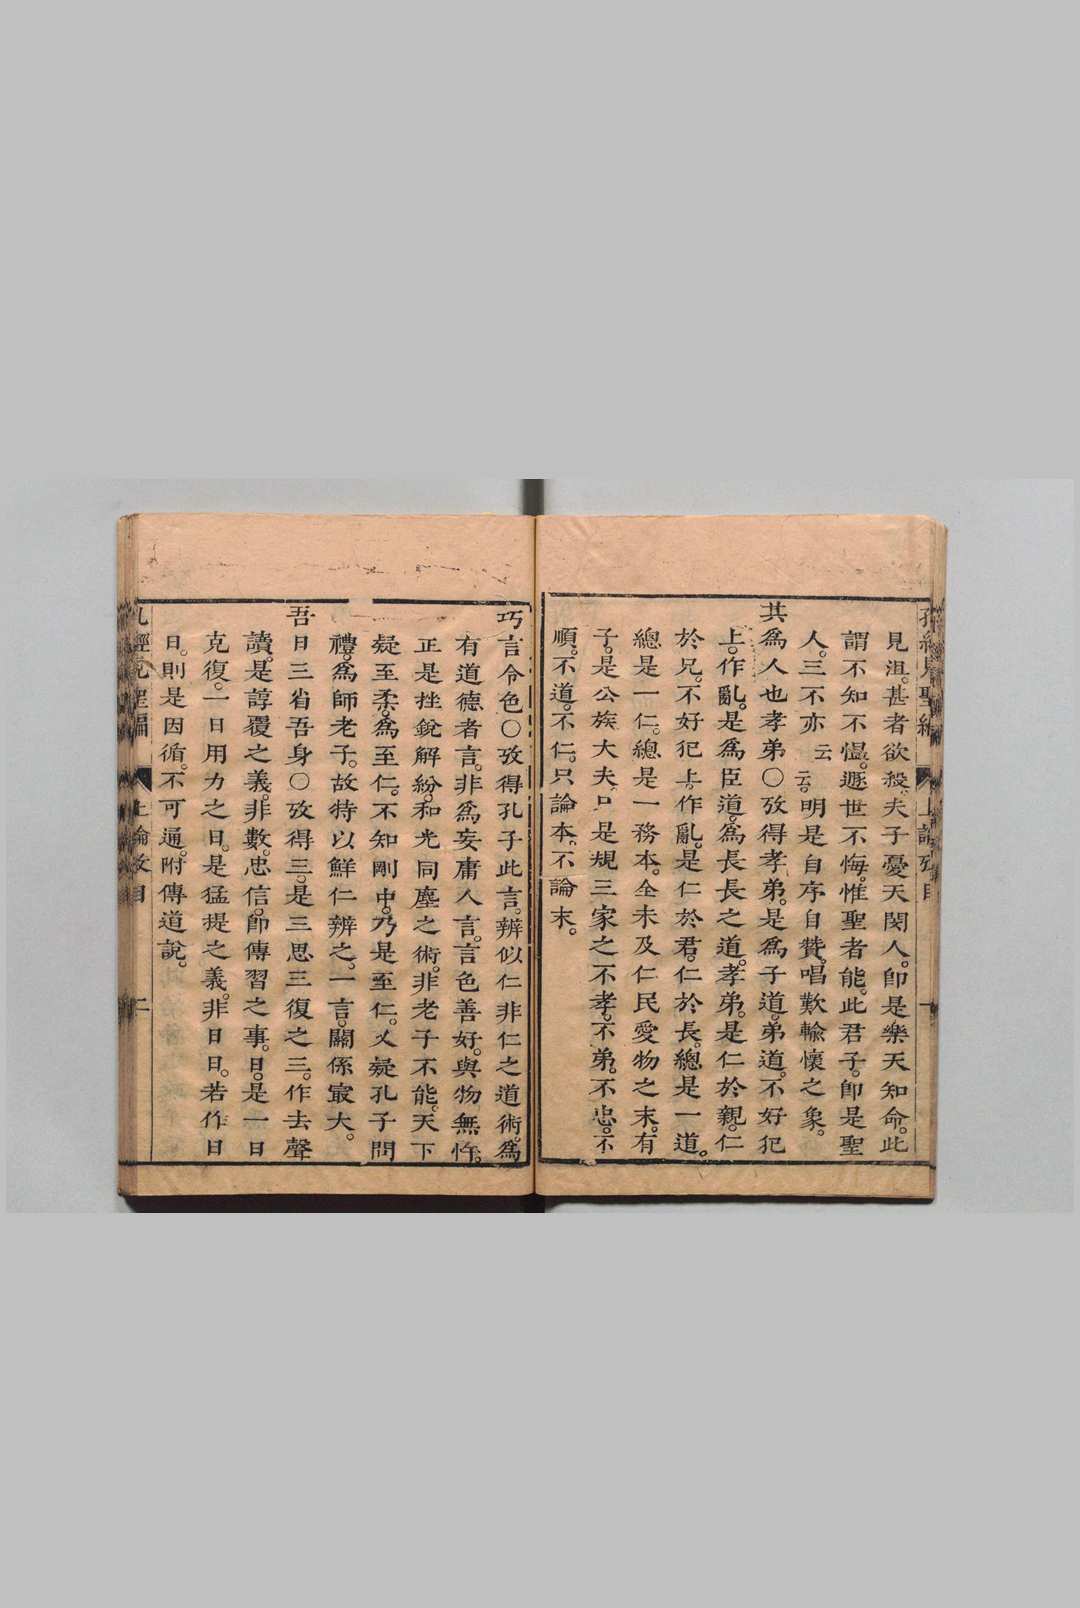 見沮。甚者欲殺。夫子憂天閔人。卽是樂天知命。此
謂不知不慍。遯世不悔。惟聖者能。此君子。卽是聖
人。三不亦云云。明是自序自贊。唱歎輸懷之象。
其爲人也孝弟○攷得孝弟。是爲子道。弟道。不好犯
上。作亂。是爲臣道。爲長長之道。孝弟。是仁於親。仁
於兄。不好犯上。作亂。是仁於君。仁於長。總是一道。
總是一仁。總是一務本。全未及仁民愛物之末。有
子。是公族大夫。只是規三家之不孝。不弟。不忠。不
順。不道。不仁。只論本。不論末。
巧言令色○攷得孔子此言。辨似仁非仁之道術。爲
有道德者言。非爲妄庸人言。言色善好。與物無忤。
正是挫銳解紛。和光同塵之術。非老子不能。天下
疑至柔。爲至仁。不知剛中。乃是至仁。又疑孔子問
禮。爲師老子。故特以鮮仁辨之。一言。關係寂大。
吾日三省吾身○攷得三。是三思三復之三。作去聲
讀。是諄覆之義。非數。忠信。卽傳習之事。日。是一日
克復。一日用力之日。是猛提之義。非日日。若作日
日。則是因循。不可通。附傳道說。
上論攷目
二